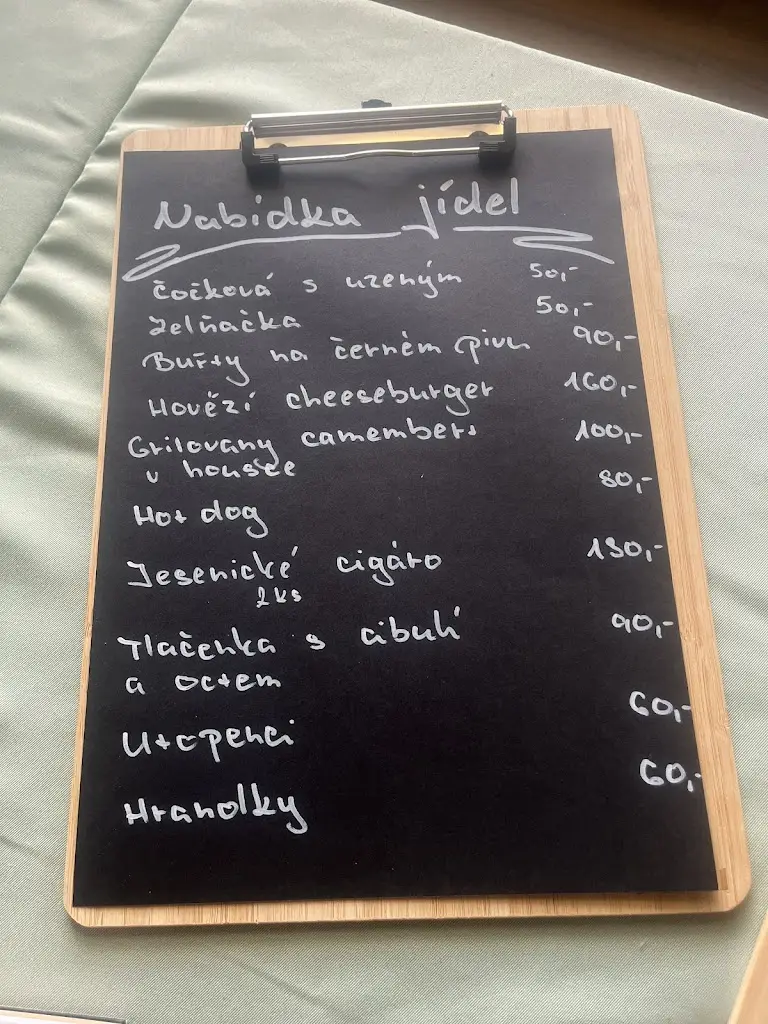 Nabídka jídel
Čočková s uzeným 50,-
Zelňačka 50,-
Buřty na černém pivu 90,-
Hovězí cheeseburger 160,-
Grilovany camembert 100,-
v housce
Hot dog 80,-
Jesenické cigáro 130,-
2ks
Tlačenka s cibulí 90,-
a octem
Utopenci 60,-
Hranolky 60,-